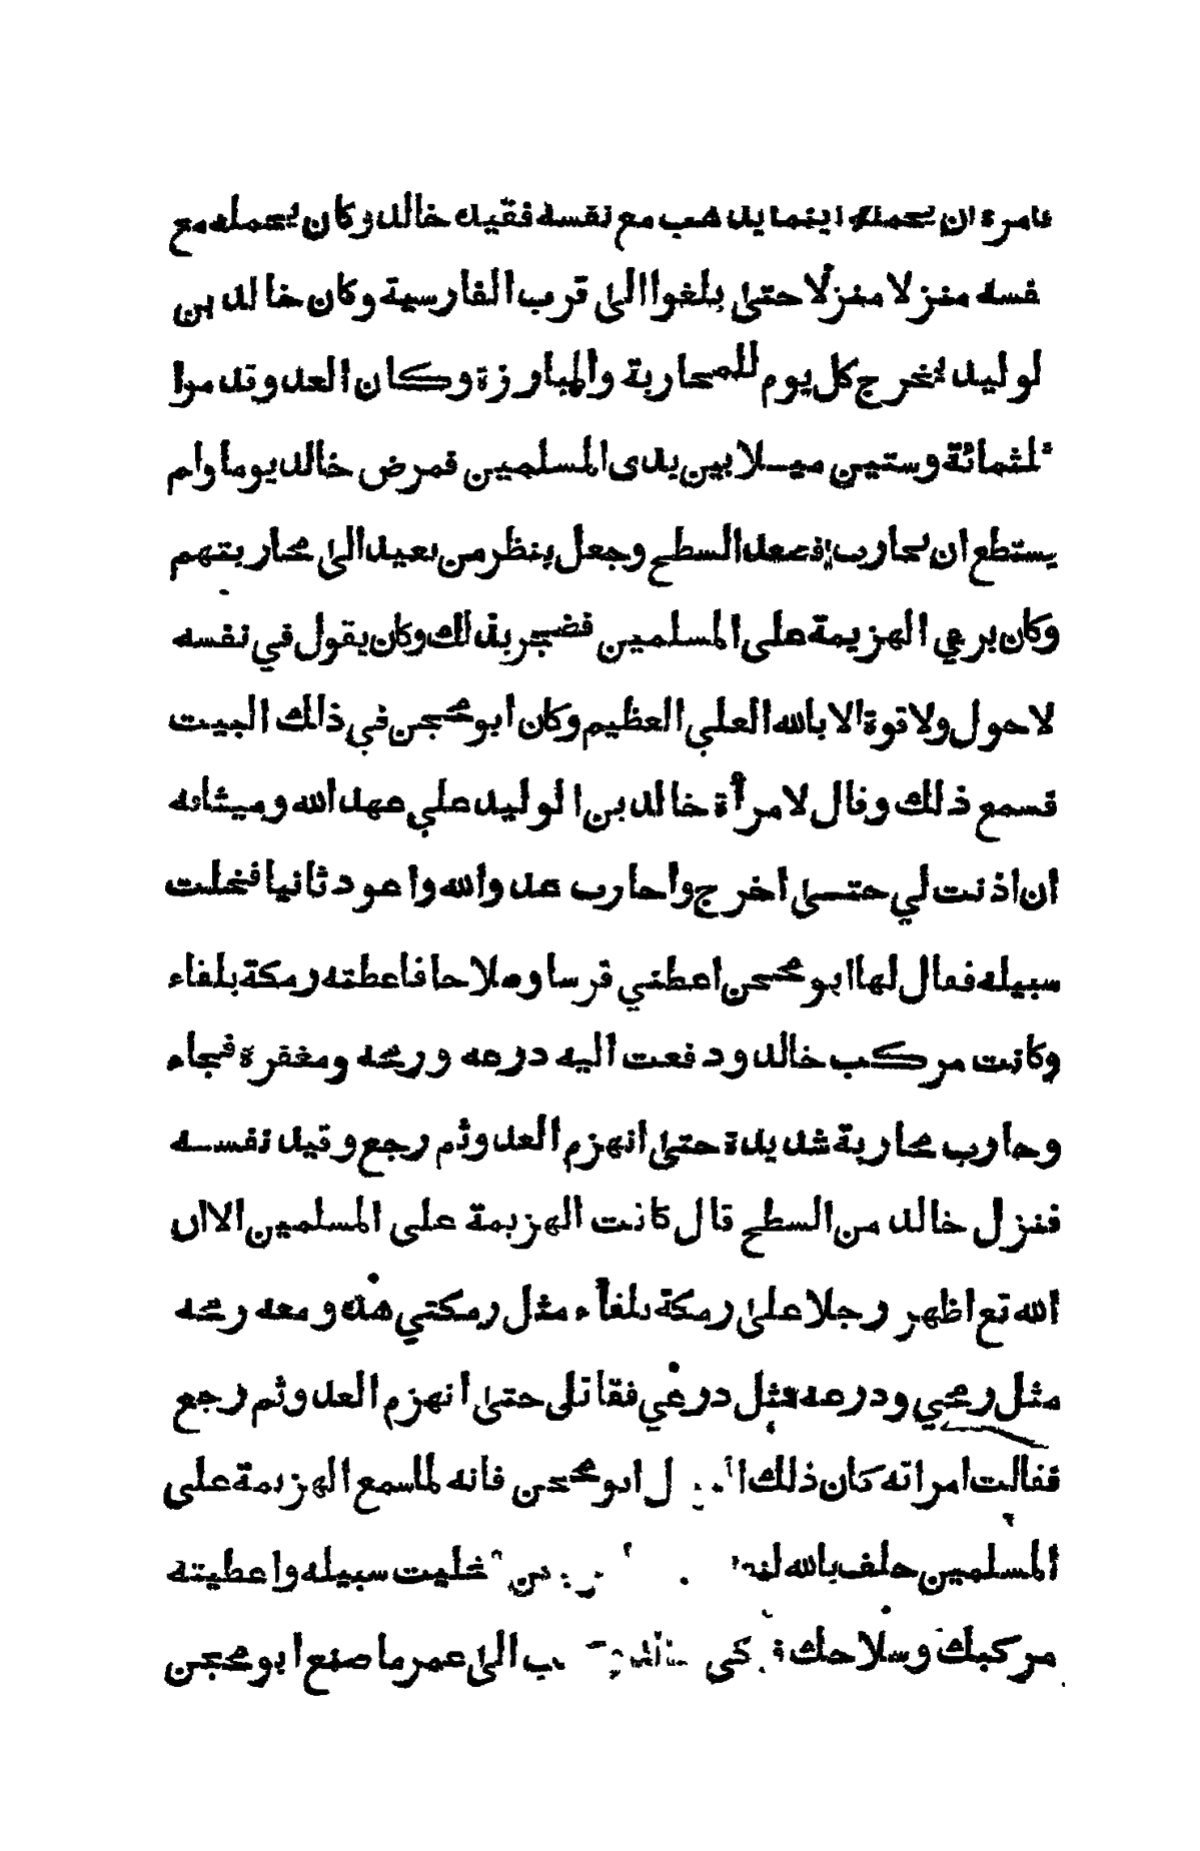 فامره ان يحمله اينما يذهب مع نفسه فقيده خالد وكان يحمله مع
نفسه منزلا منزلا حتى بلغوا الى قرب القارسية وكان خالد بن
لوليد يخرج كل يوم للمحاربة والمبارزة وكان العدو قد مرا
ثلثمائة وستين ميلا بين يدى المسلمين فمرض خالد يوما ولم
يستطع ان يحارب فصعد السطح وجعل ينظر من بعيد الى محاربتهم
وكان يرعي الهزيمة على المسلمين فضجر بذلك وكان يقول في نفسه
لا حول ولا قوة الا بالله العلي العظيم وكان ابو محجن في ذلك البيت
فسمع ذلك وقال لامرأة خالد بن الوليد علي عهد الله وميثاقه
ان اذنت لي حتى اخرج واحارب عدو الله واعود ثانيا فخلت
سبيله فقال لها ابو محجن اعطني فرسا وصلاحا فاعطته رمكة بلقاء
وكانت مركب خالد ودفعت اليه درعه ورمحه ومغفرة فجاء
وحارب محاربة شديدة حتى انهزم العدو ثم رجع وقيد نفسه
فنزل خالد من السطح قال كانت الهزيمة على المسلمين الا ان
الله تع اظهر رجلا على رمكة بلقاء مثل رمكتي هذه ومعه رمحه
مثل رمحي ودرعه مثل درعي فقاتلى حتى انهزم العدو ثم رجع
فقالت امراته كان ذلك ابو محجن فانه لما سمع الهزيمة على
المسلمين حلف بالله خليت سبيله واعطيته
مركبك وسلاحك الى عمر ما صنع ابو محجن